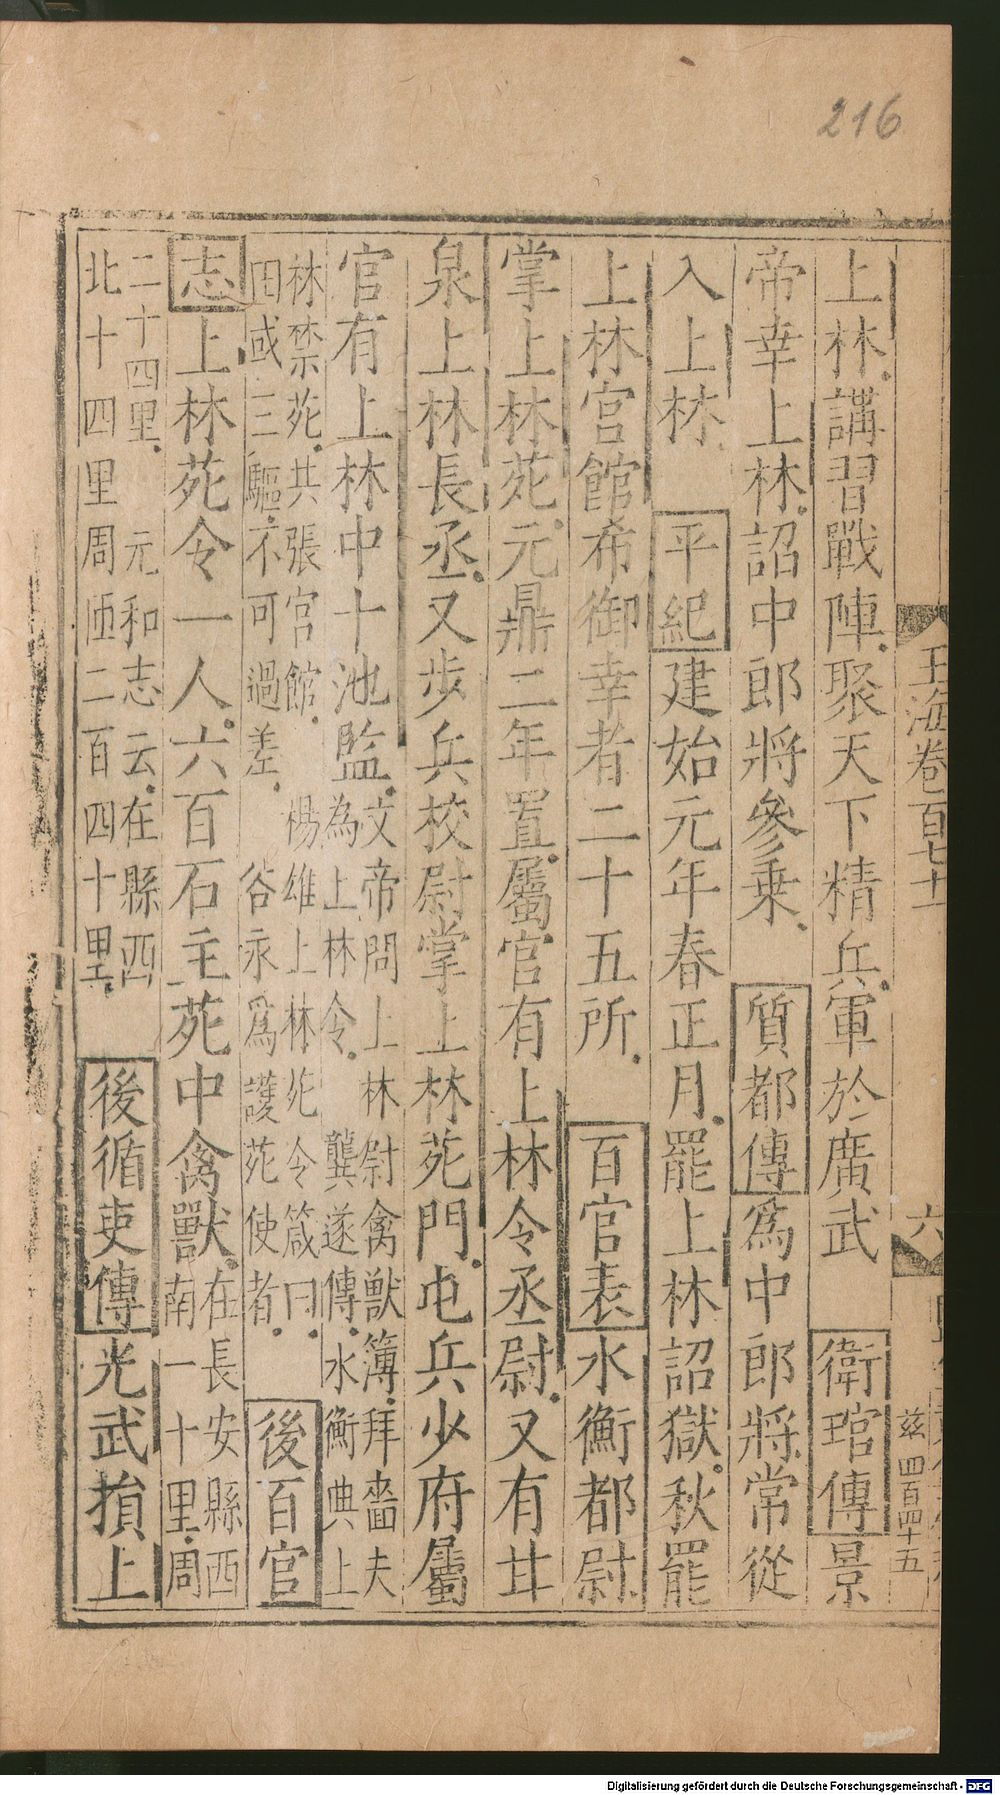 216
玉海卷百七十一
六
茲 四百四十五
上林講習戰陣聚天下精兵軍於廣武 衛琯傳景
帝幸上林詔中郎將參乗 質都傳爲中郎將常從
入上林 平紀建始元年春正月罷上林詔獄秋罷
上林宮館希御幸者二十五所 百官表水衡都尉
掌上林苑元鼎二年置屬官有上林令丞尉又有甘
泉上林長丞又步兵校尉掌上林苑門屯兵少府屬
官有上林中十池監
文帝問上林尉禽獸簿拜嗇夫
為上林令 龔遂傳水衡典上
林禁苑共張宮館 楊雄上林苑令箴曰
田或三驅不可過差 谷永爲護苑使者
後百官
志上林苑令一人六百石主苑中禽獸
在長安縣西
南一十里周
二十四里 元和志云在縣西
北十四里周匝二百四十里
後循吏傳光武損上
Digitalisierung gefördert durch die Deutsche Forschungsgemeinschaft - DFG